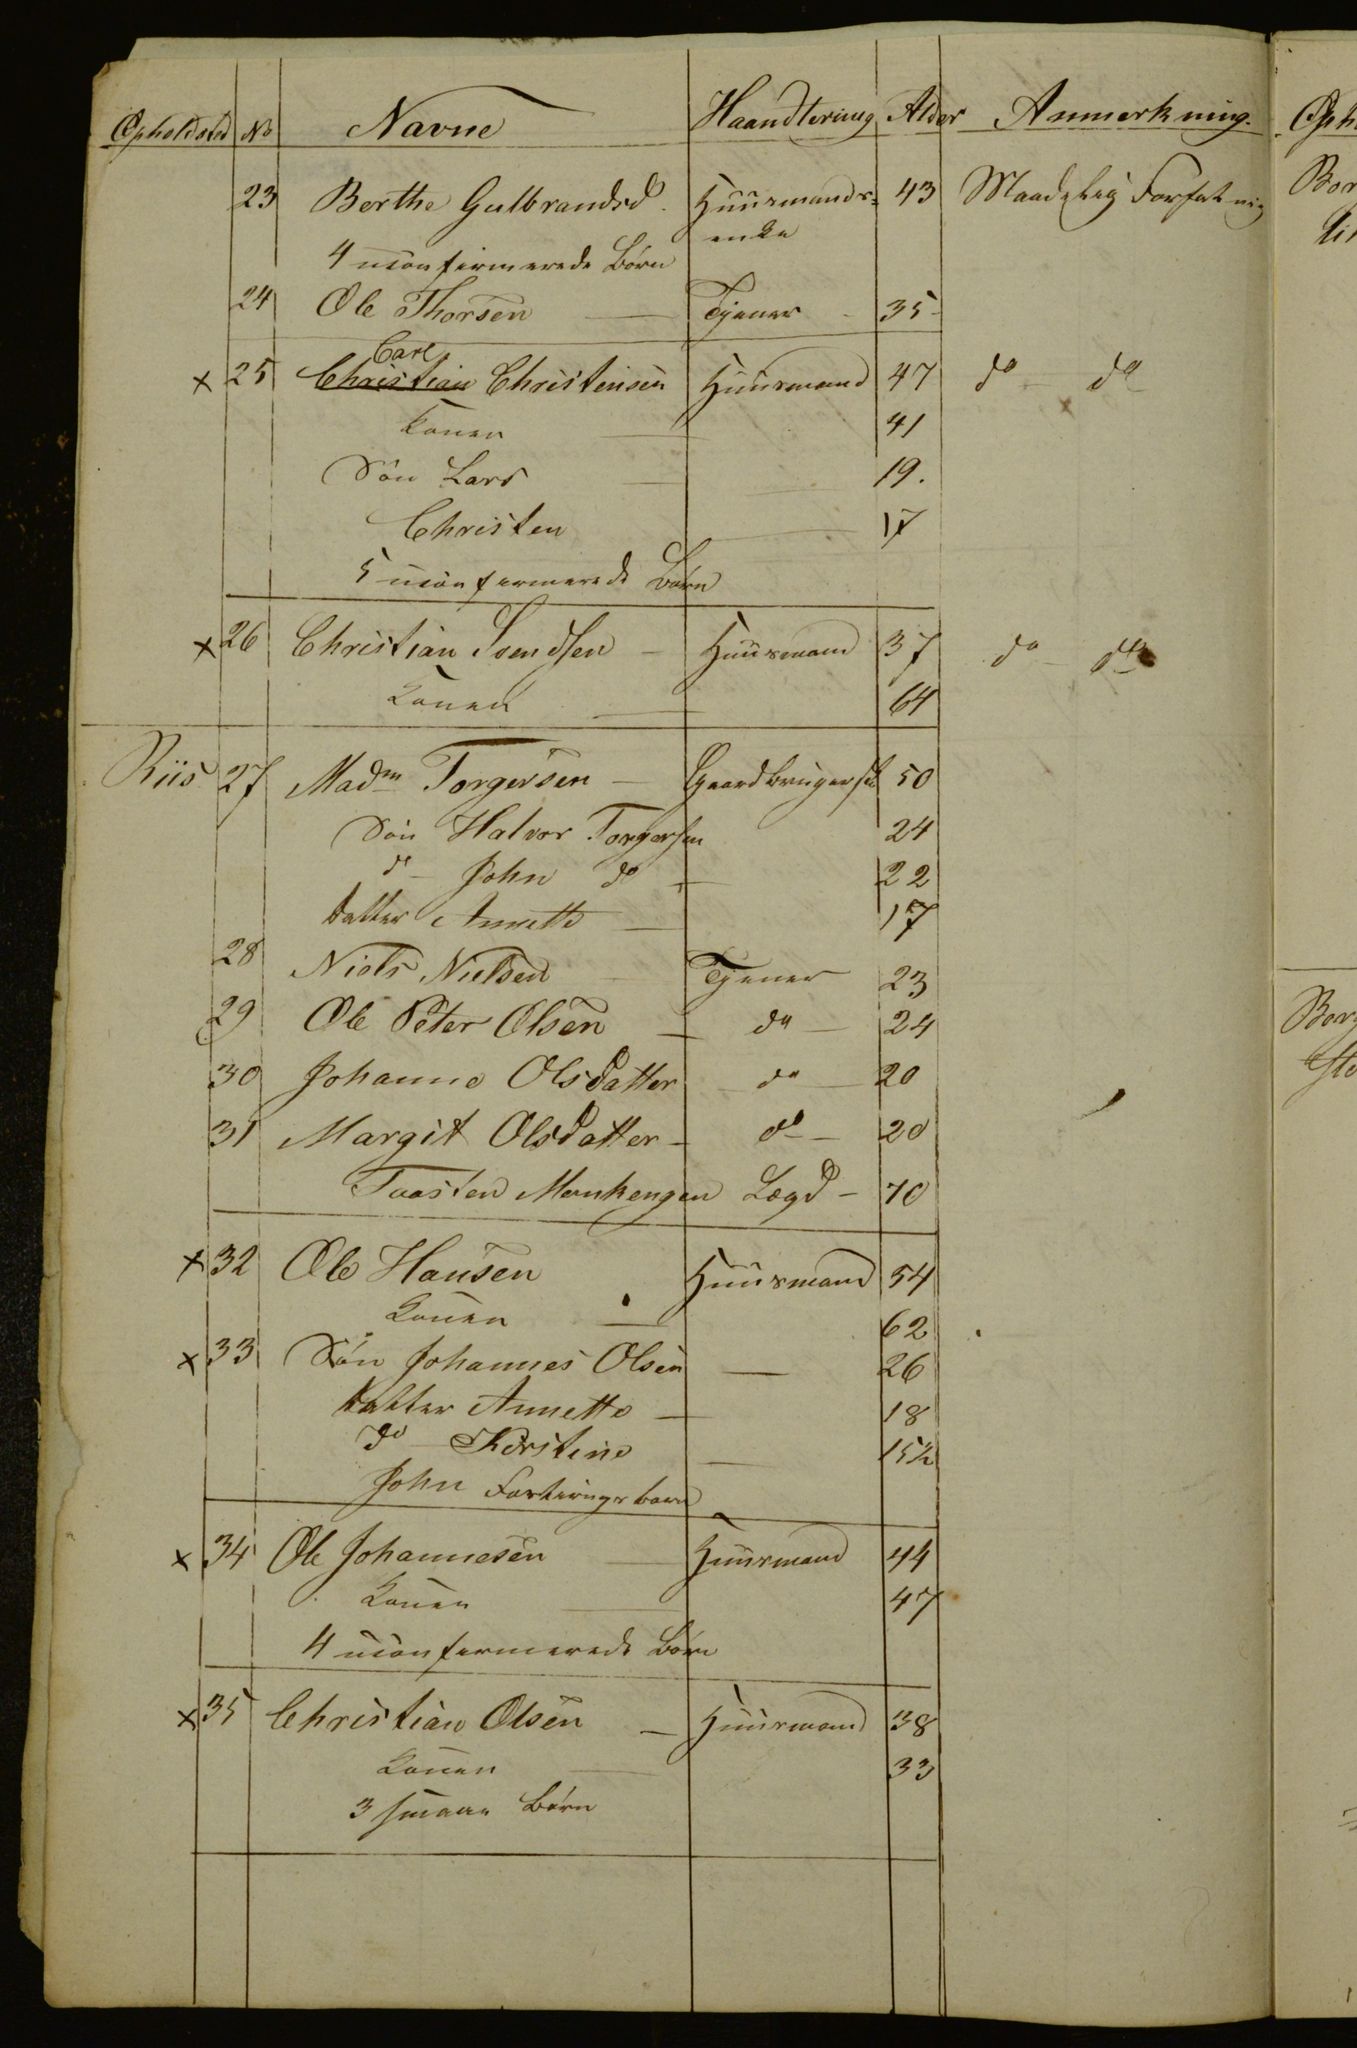 Opholdsted No Navne Haandtering Alder Anmerkning.
23 Berthe Gulbrandsd. Huusmands- 43 Maadelig Forfatning
enke
4 uconfirmerede Børn
24 Ole Thorsen Tjener - 35 -
Carl
x 25 Christian Christensen Huusmand 47 do do
Konen 41
Søn Lars 19.
Christen 17
5 uconfirmerede Børn
x 26 Christian Svendsen - Huusmand 37 do - do
Konen 64
Riis 27 Madm Torgersen - Gaardbrugerske 50
Søn Halvor Torgersen 24
do - John do - 22
datter Annette 17
28 Niels Nielsen Tjener 23
29 Ole Peter Olsen - do - 24
30 Johanne Olsdatter do - 20
31 Margit Olsdatter - do - 20
Taasten Monkengen Lægd - 70
x 32 Ole Hansen Huusmand 54
Konen 62
x 33 Søn Johannes Olsen - 26
datter Annette - 18
do - Kirstine 15½
John Fostringsbarn
x 34 Ole Johannesen Huusmand 44
Konen 47
4 uconfirmerede Børn
x 35 Christian Olsen - Huusmand 38
Konen 33
3 smaae Børn
Oph
Bor
Borg